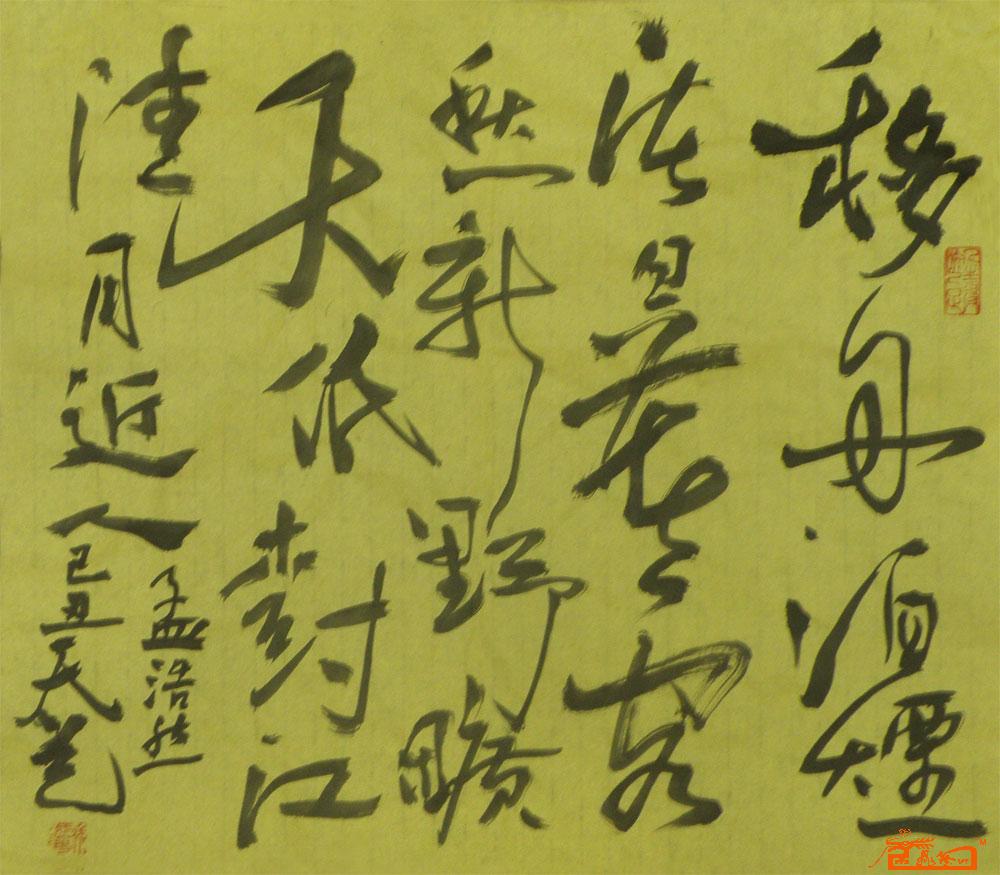 移舟泊煙
渚日暮客
愁新野曠
天低樹江
清月近人
孟浩然
己丑